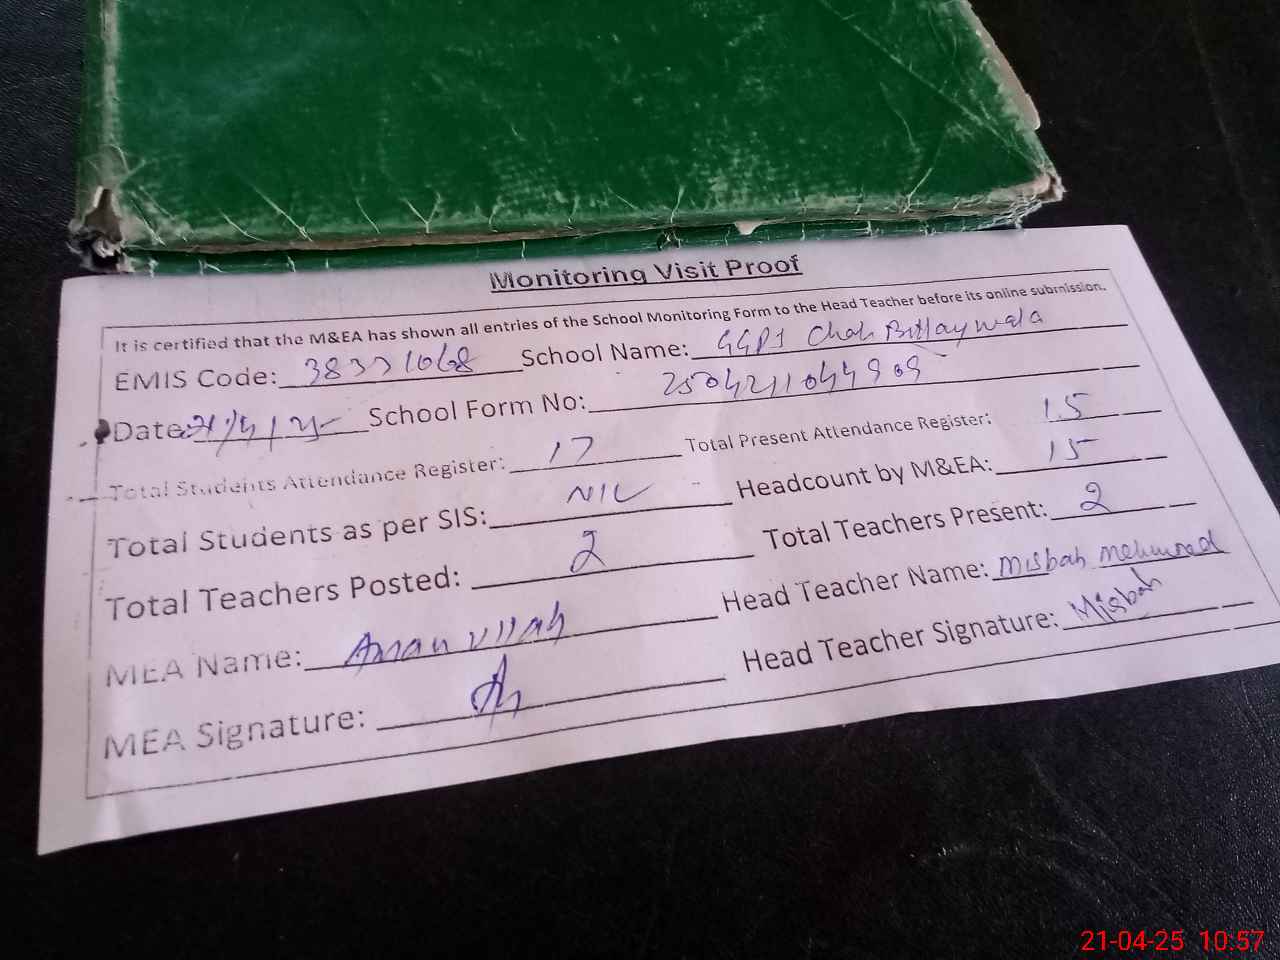 Monitoring Visit Proof
It is certified that the M&EA has shown all entries of the School Monitoring Form to the Head Teacher before its online submission.
EMIS Code: 38331068 School Name: GGPS Chah
Date: 21/4/25 School Form No: 2504211044909
Total Students Attendance Register: 17 Total Present Attendance Register: 15
Total Students as per SIS: NIL Headcount by M&EA: 15
Total Teachers Posted: 2 Total Teachers Present: 2
MEA Name: Aman ullah Head Teacher Name: Misbah Mehmood
MEA Signature: Head Teacher Signature: Misbah
21-04-25 10:57